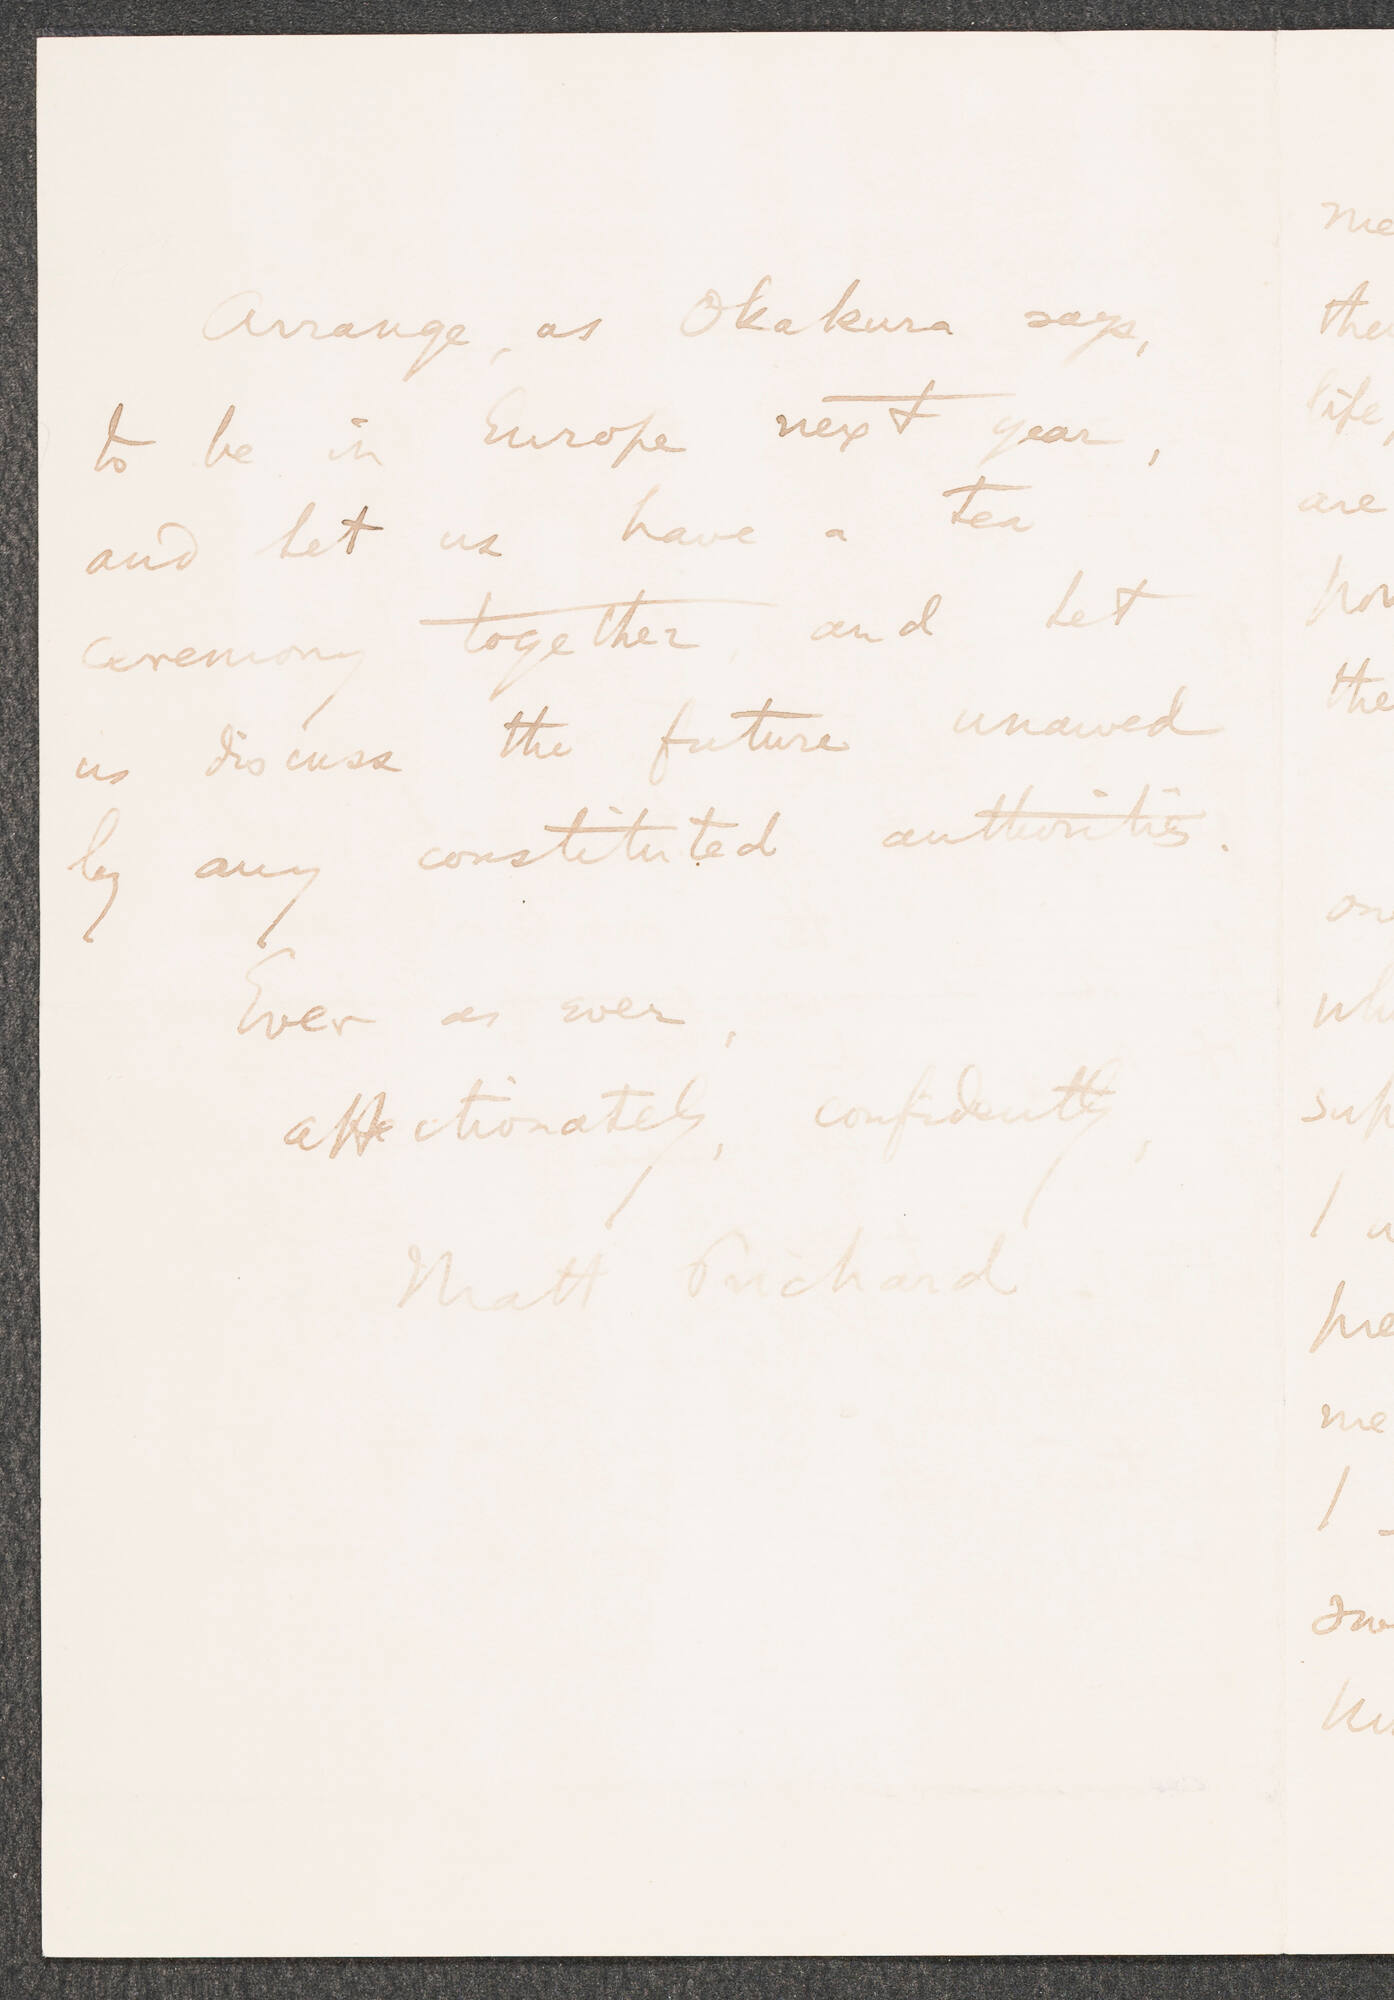 Arrange, as Okakura says,
to be in Europe next year,
and let us have a tea
ceremony together and let
us discuss the future unawed
by any constituted authorities.
Ever as ever,
affectionately, confidently,
Matt Prichard
me
the
life,
are
the
on
I
me
I